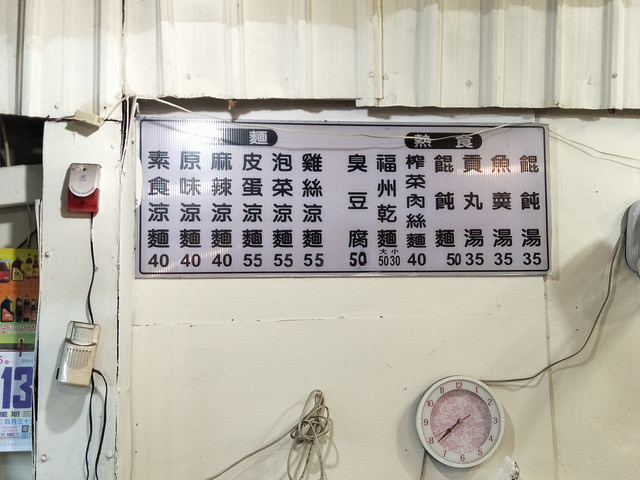 麵
素食涼麵 40
原味涼麵 40
麻辣涼麵 40
皮蛋涼麵 55
泡菜涼麵 55
雞絲涼麵 55
熱食
臭豆腐 50
福州乾麵 大50 小30
榨菜肉絲麵 40
餛飩麵 50
貢丸湯 35
魚羹湯 35
餛飩湯 35
13